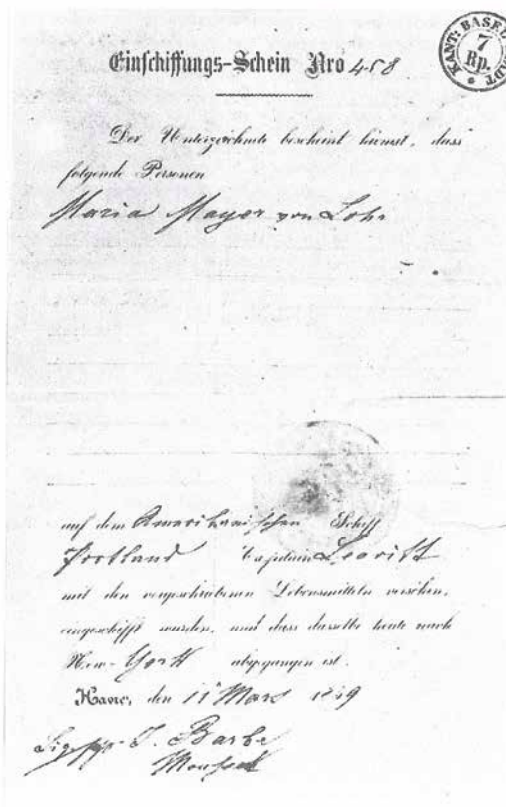 KANT: BASEL-STADT
7
Rp.
Einschiffungs-Schein Nro 458
Der Unterzeichnete bescheint hiemit, dass
folgende Personen
Maria Mayer von Lohr
auf dem Amerikanischen Schiff
Portland Capitain Leavitt
mit den vorgeschriebenen Lebensmitteln versehen,
eingeschifft wurden, und dass dasselbe heute nach
New-York abgegangen ist.
Havre, den 11 Mars 1849
J. Barbe